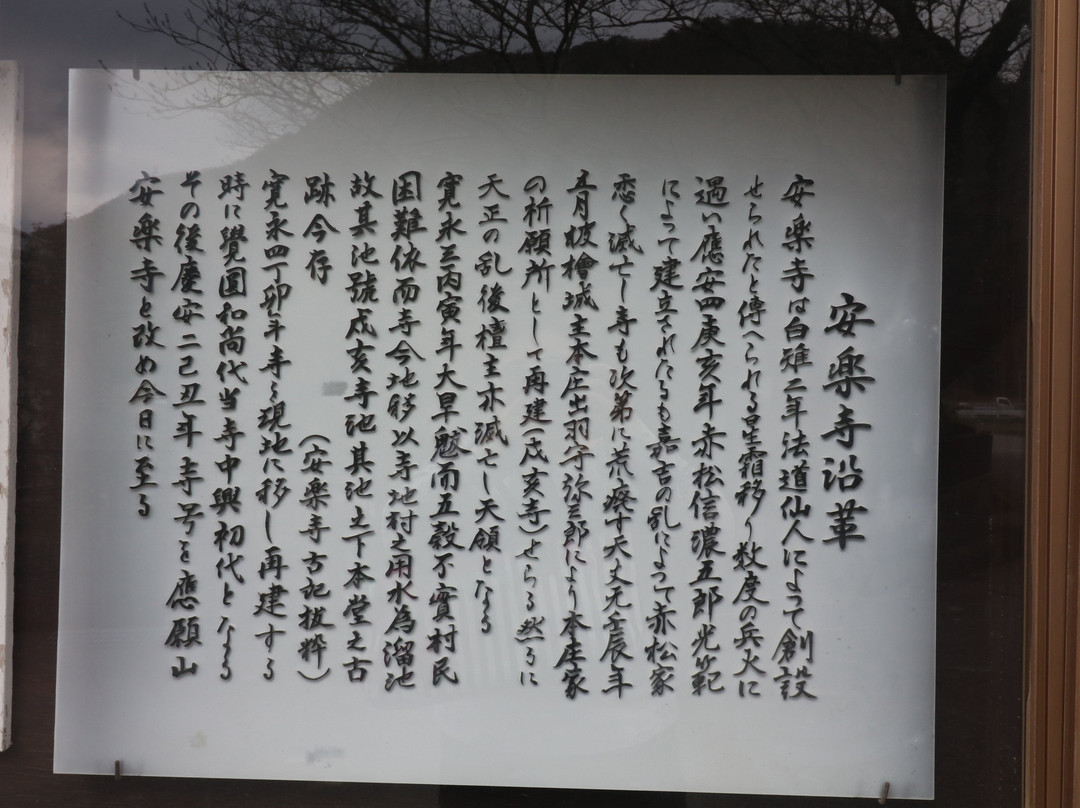 安楽寺沿革
安楽寺は白雉二年法道仙人によって創設
せられたと傳へられる星霜移り数度の兵火に
遇い應安四庚亥年赤松信濃五郎光範
によって建立されたるも嘉吉の乱によって赤松家
悉く滅亡し寺も次第に荒廃す天文元壬辰年
五月枝檜城主本庄出羽守弥三郎により本庄家
の祈願所として再建(戊亥寺)せらる然るに
天正の乱後檀主亦滅亡し天領となる
寛永三丙寅年大旱魃而五穀不實村民
困難依而寺今地移以寺地村之用水為溜池
故其池號戊亥寺池其池之下本堂之古
跡今存(安楽寺古記抜粋)
寛永四丁卯年寺を現地に移し再建する
時に覺圓和尚代当寺中興初代となる
その後慶安二己丑年寺号を應願山
安楽寺と改め今日に至る